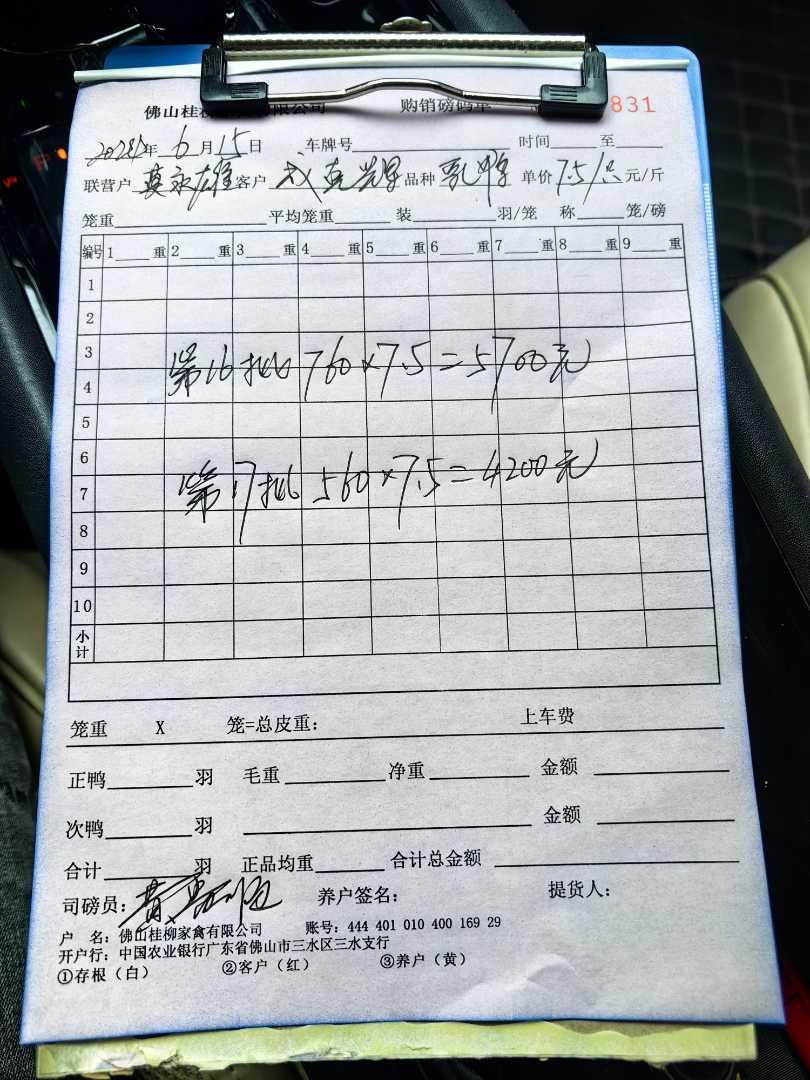 佛山桂柳 有限公司 购销磅码单 831
2024年 6月15日 车牌号 时间 至
联营户 莫永雄 客户 成 辉 品种 乳鸽 单价 7.5/只 元/斤
笼重 平均笼重 装 羽/笼 称 笼/磅
编号 1 重 2 重 3 重 4 重 5 重 6 重 7 重 8 重 9 重
1
2
3
第16批 760×7.5=5700元
4
5
6
第17批 560×7.5=4200元
7
8
9
10
小计
笼重 X 笼=总皮重: 上车费
正鸭 羽 毛重 净重 金额
次鸭 羽 金额
合计 羽 正品均重 合计总金额
司磅员: 养户签名: 提货人:
户 名: 佛山桂柳家禽有限公司 账号: 444 401 010 400 169 29
开户行: 中国农业银行广东省佛山市三水区三水支行
①存根(白) ②客户(红) ③养户(黄)